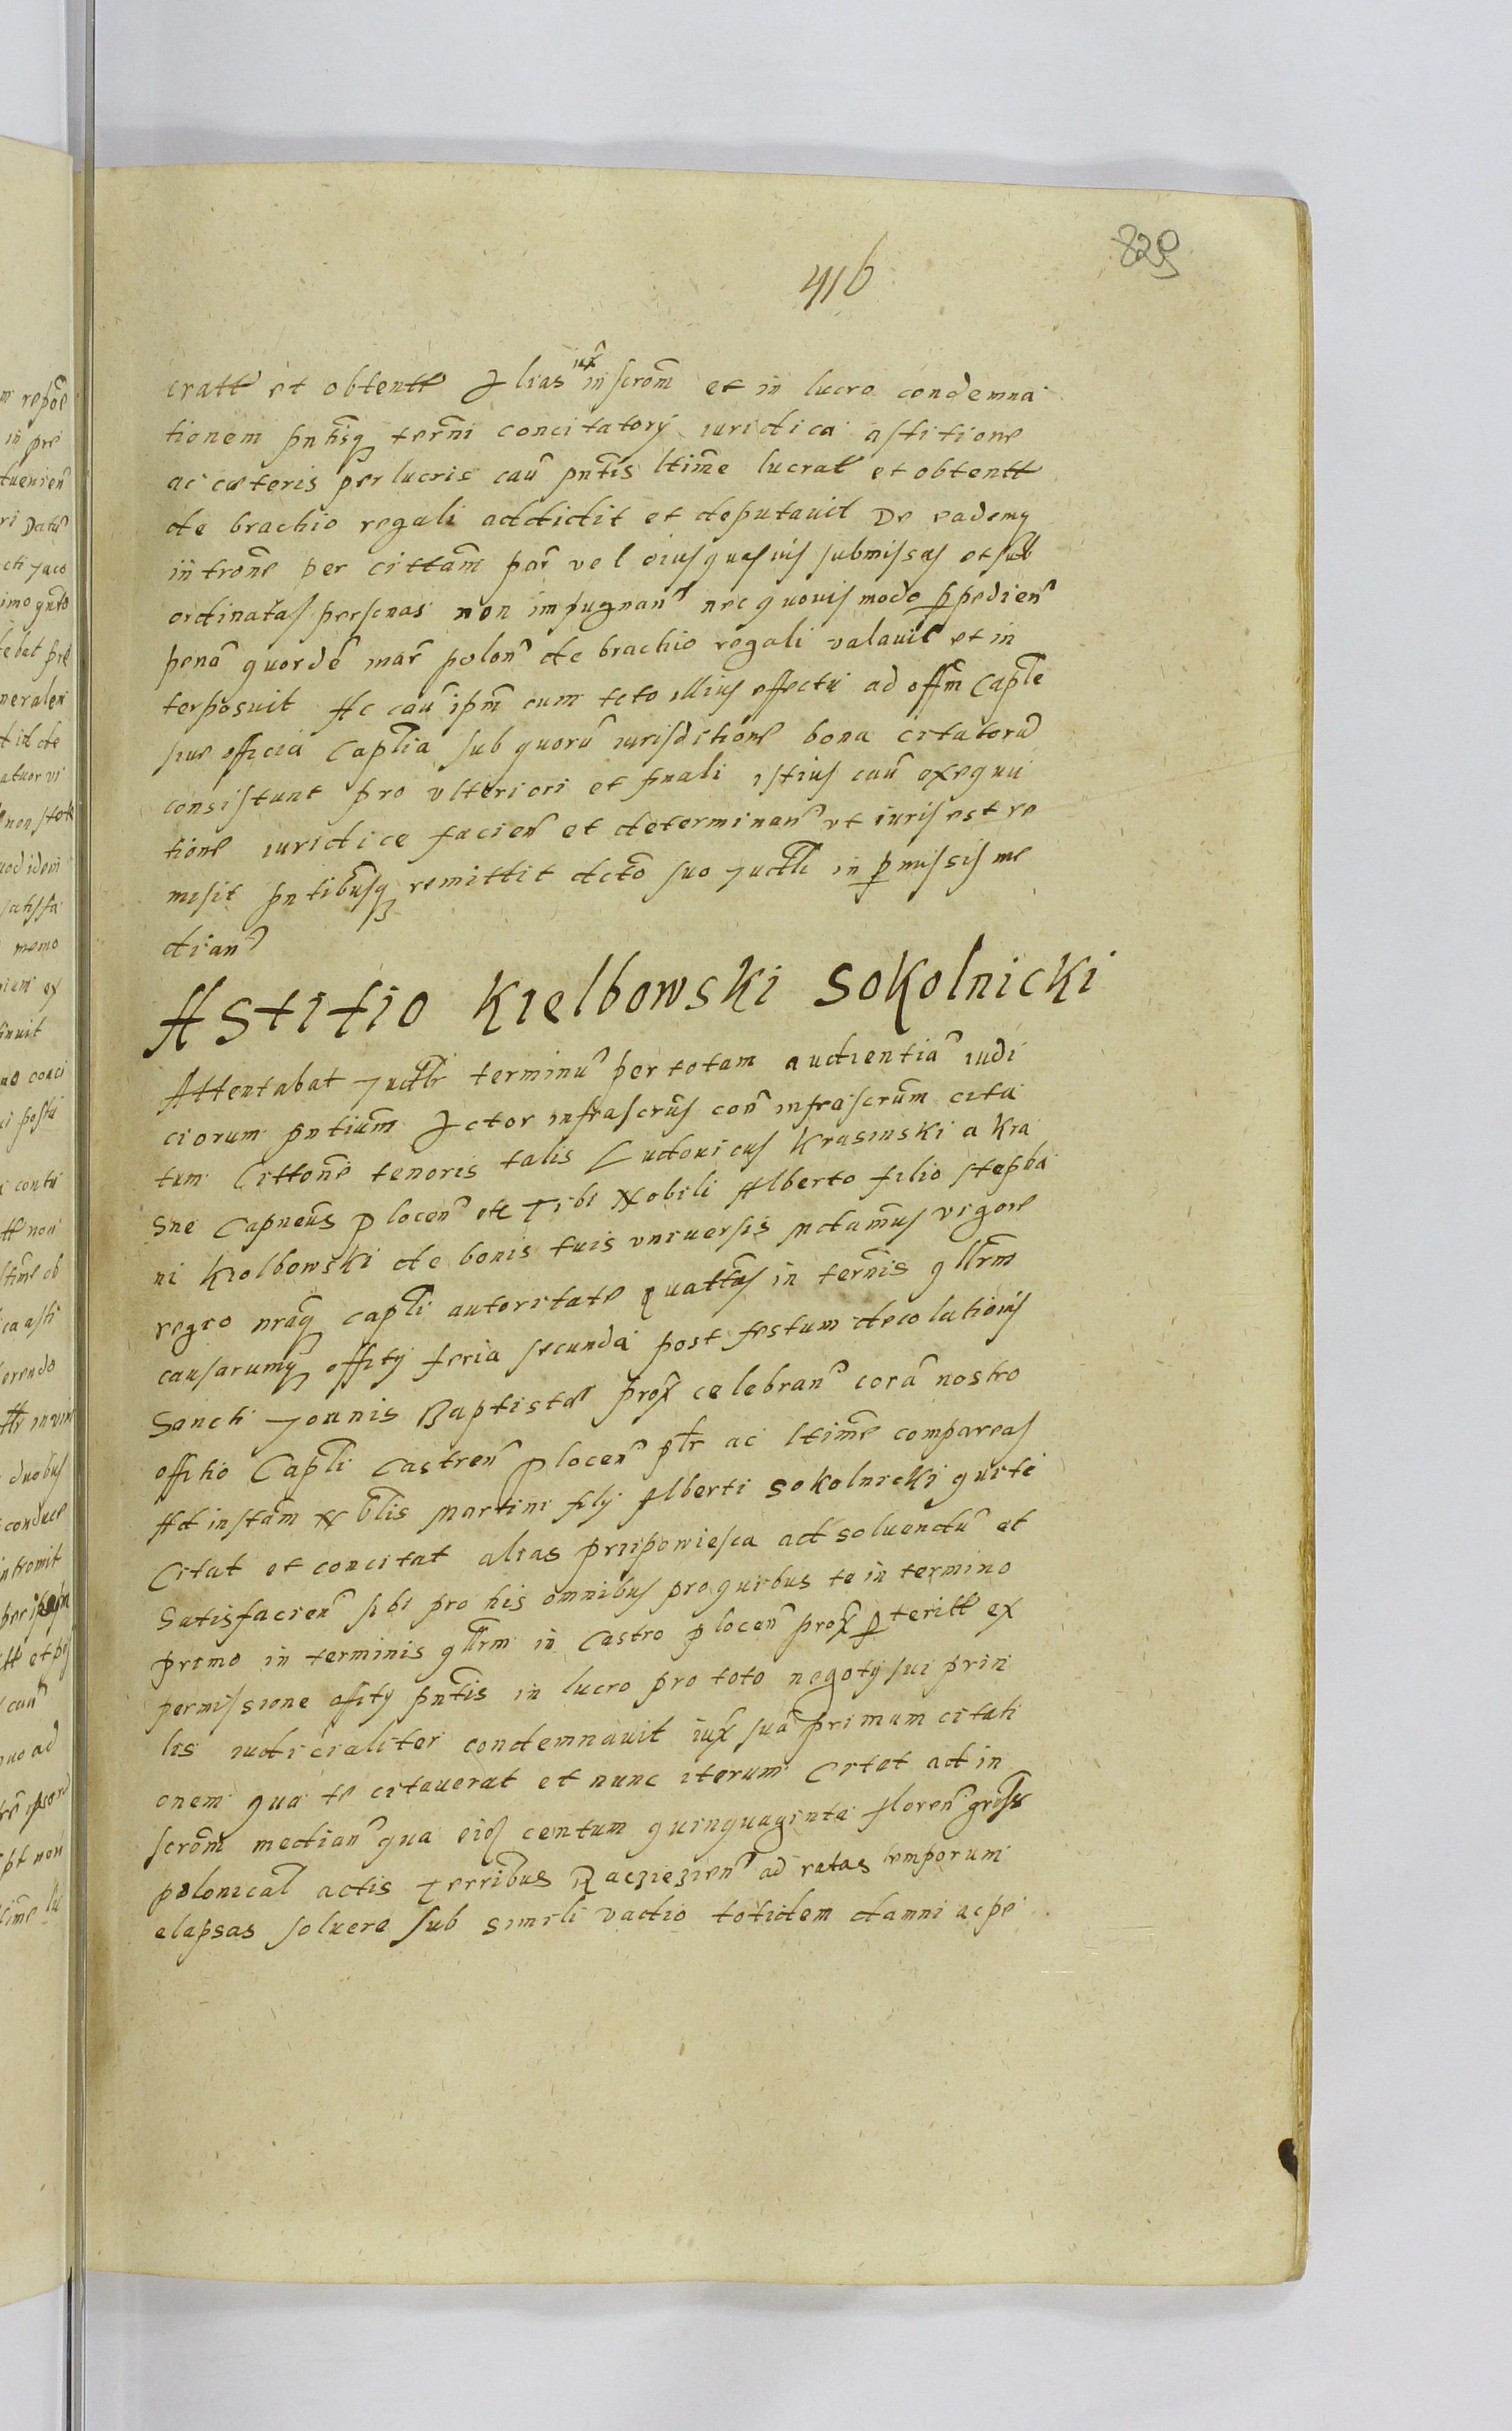 829
416
cratt et obtentt Alias iux̃ inscrom̃ et in lucro condemna
tionem pntisq̃ termi concitatorÿ iuridica astitione
ac cæteris perlucris cau pntis ltime lucrat et obtentt
de brachio regali addidit et deputauit De eademq
introne per cittam par vel eius quasuis submissas et sub
ordinatas personas non impugnan nec quouis modo ppedien
pena quorde mar polon de brachio regali valauit et in
terposuit Ac cau ipm cum toto illius effectu ad offm Caple
siue officia Caplia sub quoru iurisditione bona citatora
consistunt pro vlteriori et finali istius cau exequu
tione iuridice facien et determinan vt iuris est re
misit pntibusq remittit dcto suo Judli in pmissis me
dian
Astitio Kielbowski Sokolnicki
Attentabat Judlr terminu per totam audientia iudi
ciorum pntium Actor infrascrus con infrascrum cita
tum Cittone tenoris talis Ludouicus Krasinski a Kra
sne Capneus Plocen etc Tibi Nobili Alberto filio Stepha
ni Kiolbowski de bonis tuis vniuersis mdamus vigore
regio nraq capli autoritate quattas in ternis qllrm
causarumq offity feria secunda post festum decolationis
Sancti Joannis Baptistæ prox celebran cora nostro
offitio Capli Castren Plocen pltr ac ltime compareas
Ad instam Nblis Martini filÿ Alberti Sokolnicki qui te
Citat et concitat alias przipowiesca ad soluendu et
Satisfacien sibi pro his omnibus pro quibus te in termino
primo in terminis qllrm in Castro Plocen prox pteritt ex
permissione offity pntis in lucro pro toto negotÿ sui prin
lis iudicialiter condemnauit iux sua primam citati
onem qua te citauerat et nunc iterum Citat ad in
scrom median qua eiq centum quinquaginta floren gross
polonical actis Terribus Raczięzien ad ratas temporum
elapsas soluere sub simili vadio totidem damni ac pe